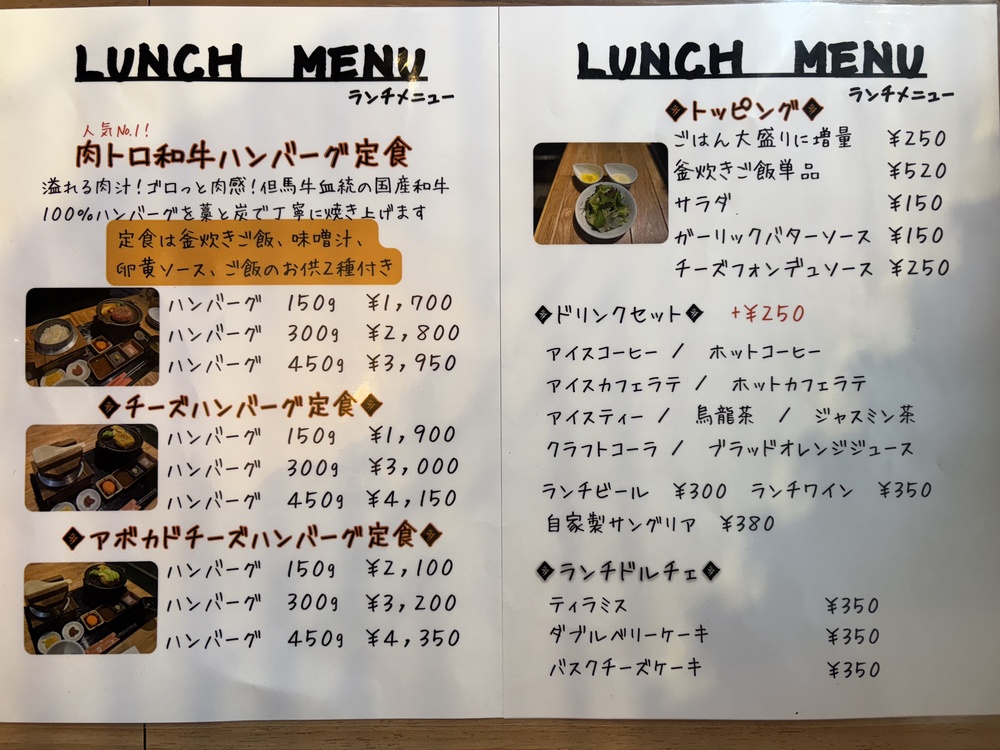 LUNCH MENU
ランチメニュー
人気No.1!
肉トロ和牛ハンバーグ定食
溢れる肉汁!ゴロっと肉感!但馬牛血統の国産和牛
100%ハンバーグを藁と炭で丁寧に焼き上げます
定食は釜炊きご飯、味噌汁、
卵黄ソース、ご飯のお供2種付き
ハンバーグ 150g ¥1,700
ハンバーグ 300g ¥2,800
ハンバーグ 450g ¥3,950
◆チーズハンバーグ定食◆
ハンバーグ 150g ¥1,900
ハンバーグ 300g ¥3,000
ハンバーグ 450g ¥4,150
◆アボカドチーズハンバーグ定食◆
ハンバーグ 150g ¥2,100
ハンバーグ 300g ¥3,200
ハンバーグ 450g ¥4,350
LUNCH MENU
ランチメニュー
◆トッピング◆
ごはん大盛りに増量 ¥250
釜炊きご飯単品 ¥520
サラダ ¥150
ガーリックバターソース ¥150
チーズフォンデュソース ¥250
◆ドリンクセット◆ +¥250
アイスコーヒー / ホットコーヒー
アイスカフェラテ / ホットカフェラテ
アイスティー / 烏龍茶 / ジャスミン茶
クラフトコーラ / ブラッドオレンジジュース
ランチビール ¥300 ランチワイン ¥350
自家製サングリア ¥380
◆ランチドルチェ◆
ティラミス ¥350
ダブルベリーケーキ ¥350
バスクチーズケーキ ¥350